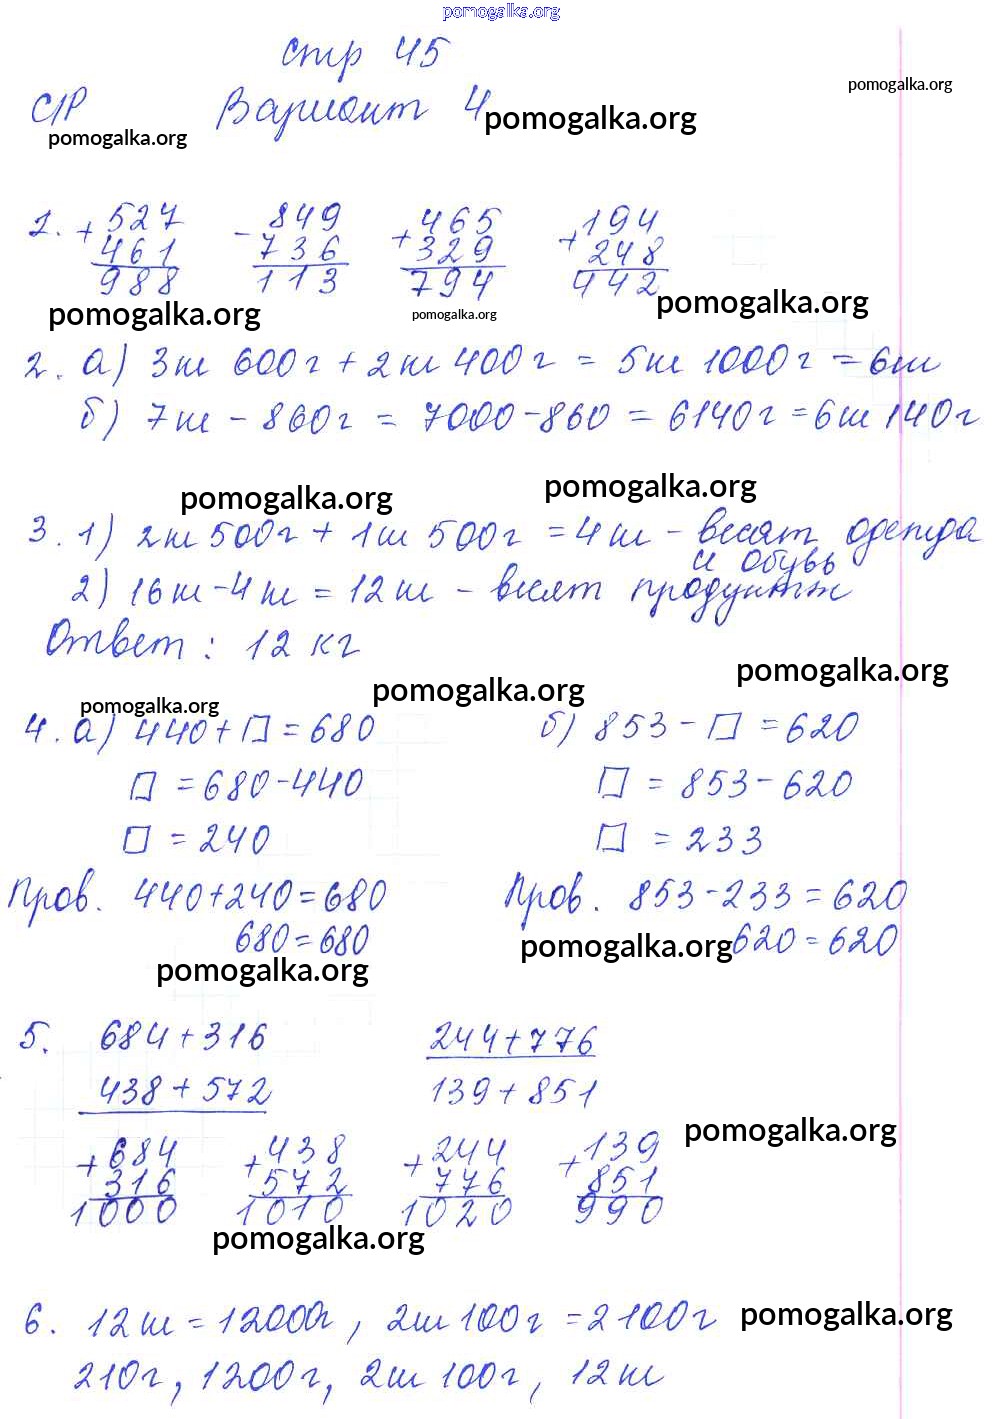 pomogalka.org
стр 45
pomogalka.org
С/Р Вариант 4
pomogalka.org
pomogalka.org
1. +527 -849 +465 +194
461 736 329 248
988 113 794 442
pomogalka.org
pomogalka.org
pomogalka.org
2. а) 3кг 600г + 2кг 400г = 5кг 1000г = 6кг
б) 7кг - 860г = 7000-860 = 6140г = 6кг 140г
pomogalka.org
pomogalka.org
3. 1) 2кг 500г + 1кг 500г = 4кг - весят одежда
и обувь
2) 16кг - 4кг = 12кг - весят продукты
Ответ: 12 кг
pomogalka.org
pomogalka.org
pomogalka.org
4. а) 440 + □ = 680 б) 853 - □ = 620
□ = 680-440 □ = 853-620
□ = 240 □ = 233
Пров. 440+240=680 Пров. 853-233=620
680=680 620=620
pomogalka.org
pomogalka.org
5. 684+316 244+776
438+572 139+851
+684 +438 +244 +139
316 572 776 851
1000 1010 1020 990
pomogalka.org
pomogalka.org
6. 12кг = 12000г, 2кг 100г = 2100г
pomogalka.org
210г, 1200г, 2кг 100г, 12кг